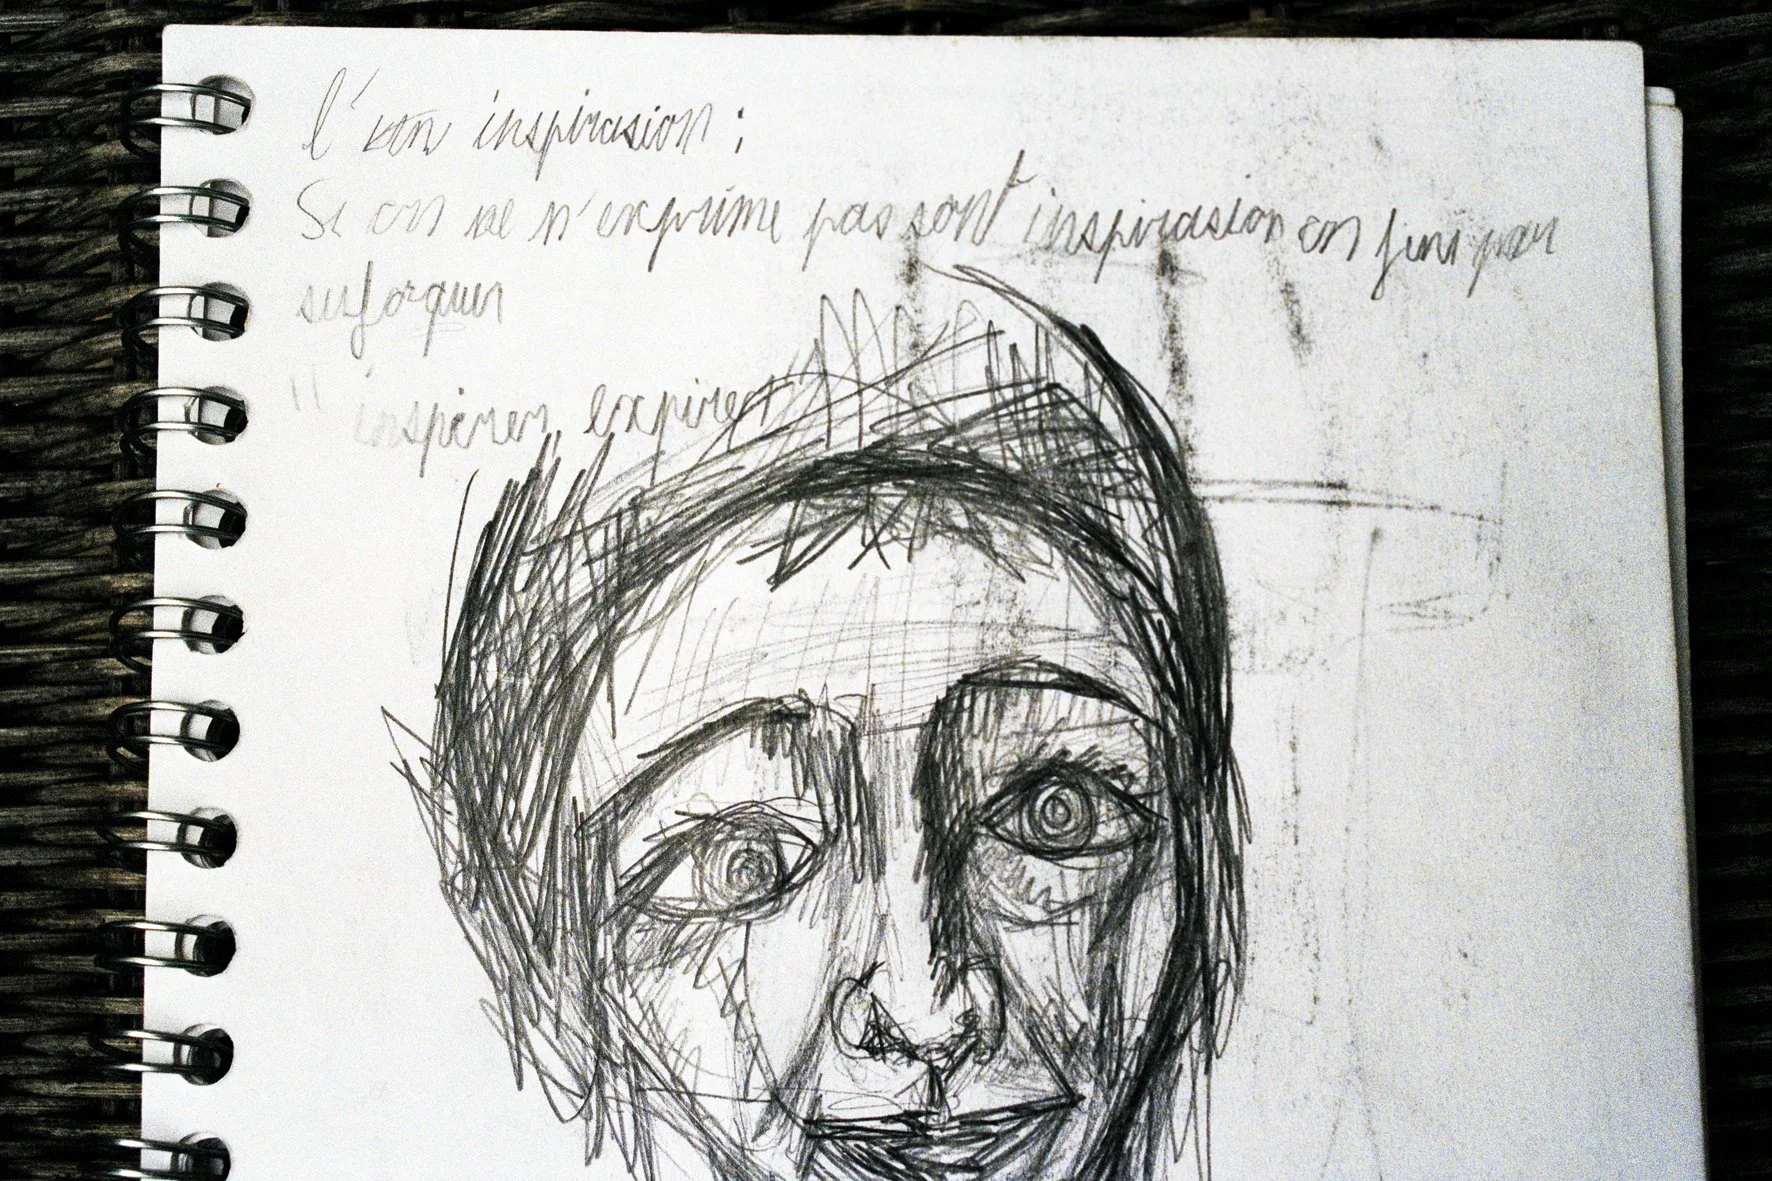 l'von inspirasion :
Si on ne n'exprime pas sont inspirasion on fini par
sufoquer
" inspirer, expirer